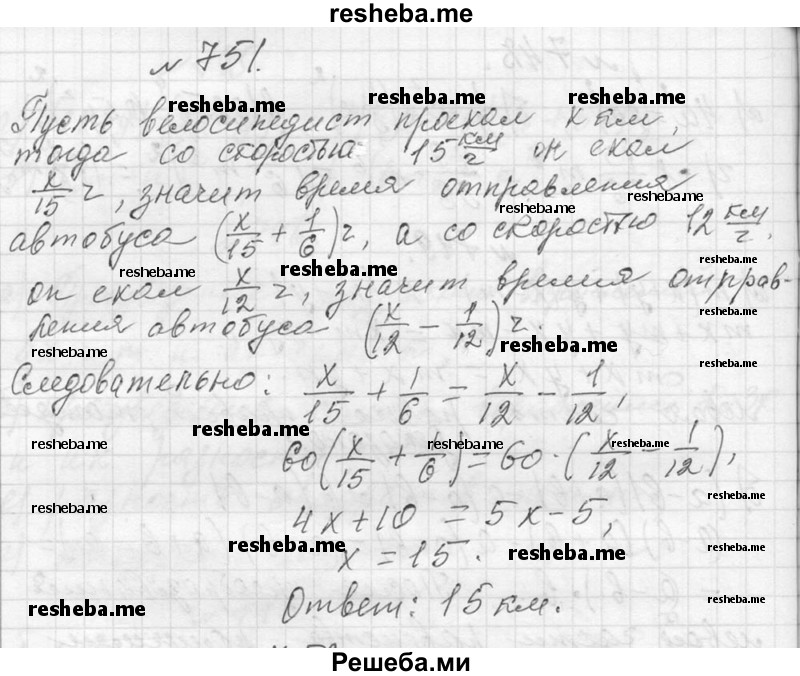 resheba.me
№ 751.
resheba.me resheba.me resheba.me
Пусть велосипедист проехал x км,
тогда со скоростью 15 км/ч он ехал
x/15 ч, значит время отправления
resheba.me resheba.me
автобуса (x/15 + 1/6) ч, а со скоростью 12 км/ч,
resheba.me resheba.me resheba.me
он ехал x/12 ч, значит время отправ-
ления автобуса (x/12 - 1/12) ч.
resheba.me resheba.me resheba.me
Следовательно: x/15 + 1/6 = x/12 - 1/12,
resheba.me
resheba.me resheba.me resheba.me
60(x/15 + 1/6) = 60 · (x/12 - 1/12),
resheba.me resheba.me
4x + 10 = 5x - 5,
resheba.me resheba.me
x = 15.
resheba.me resheba.me
Ответ: 15 км.
Решеба.ми